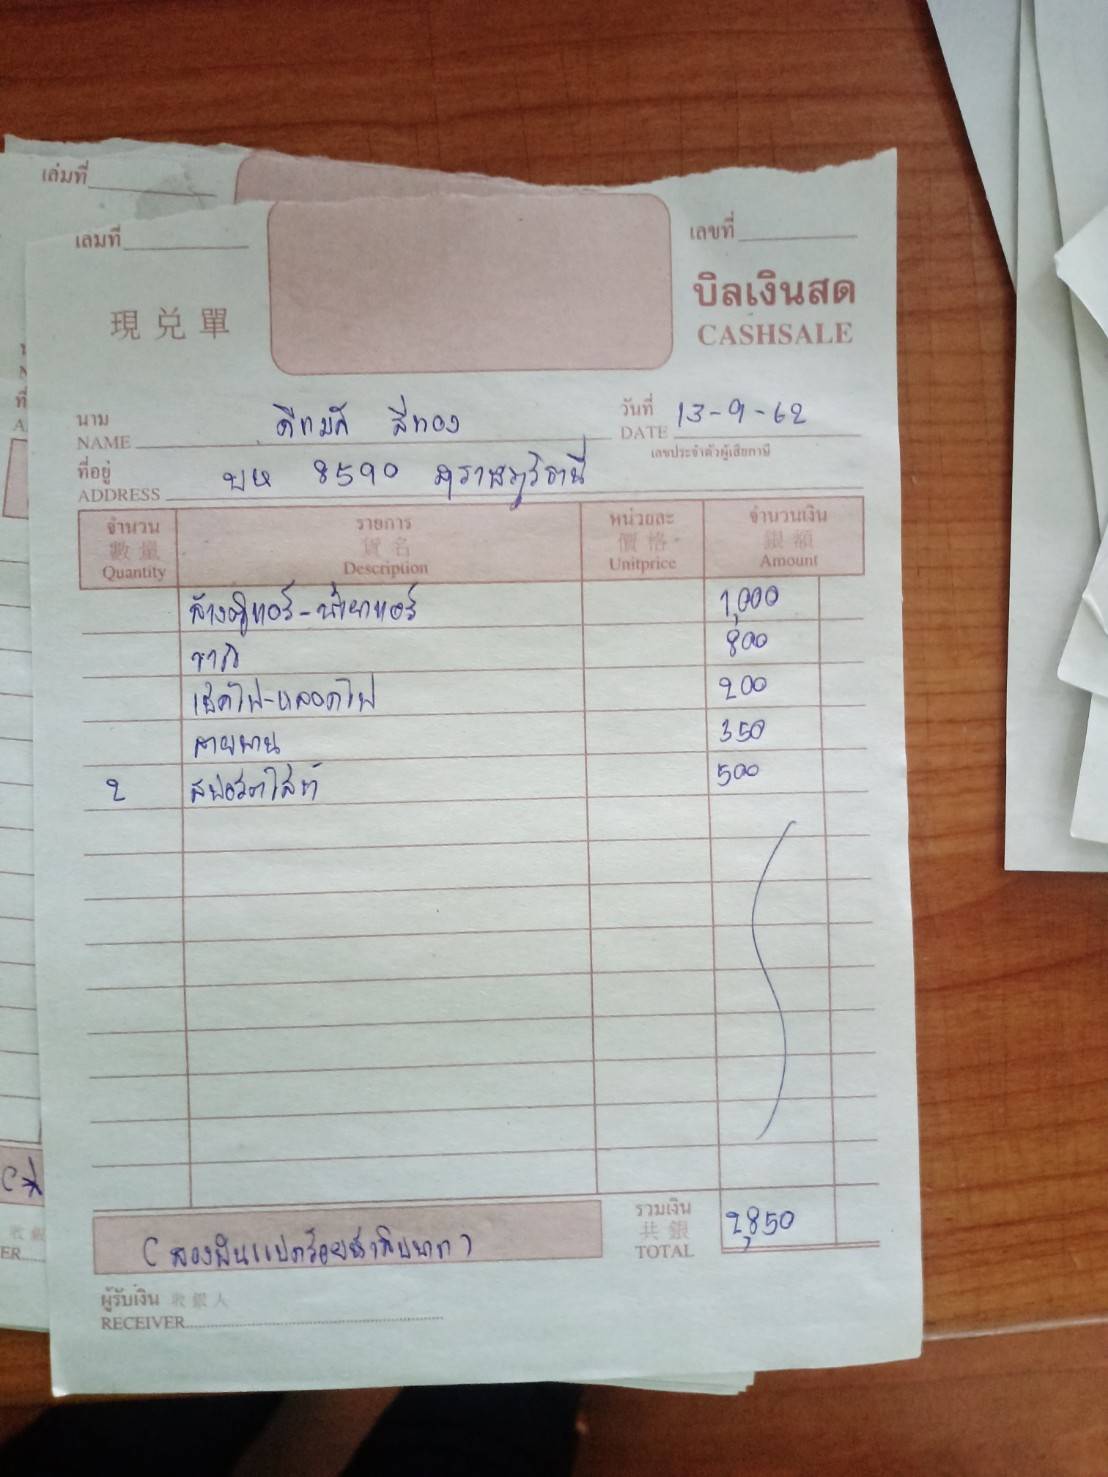 เล่มที่
เล่มที่
เลขที่
現兑單
บิลเงินสด
CASHSALE
นาม
NAME
ดีแมกซ์ สีทอง
วันที่
DATE
13-9-62
เลขประจำตัวผู้เสียภาษี
ที่อยู่
ADDRESS
บห 8590 สุราษฎร์ธานี
จำนวน รายการ หน่วยละ จำนวนเงิน
數量 貨名 價格 銀額
Quantity Description Unitprice Amount
ล้างตู้แอร์-น้ำยาแอร์ 1,000
800
เช็คไฟ-หลอดไฟ 200
สายพาน 350
2 สปอร์ตไลท์ 500
รวมเงิน
共銀
TOTAL
2,850
(สองพันแปดร้อยห้าสิบบาท)
ผู้รับเงิน 收銀人
RECEIVER